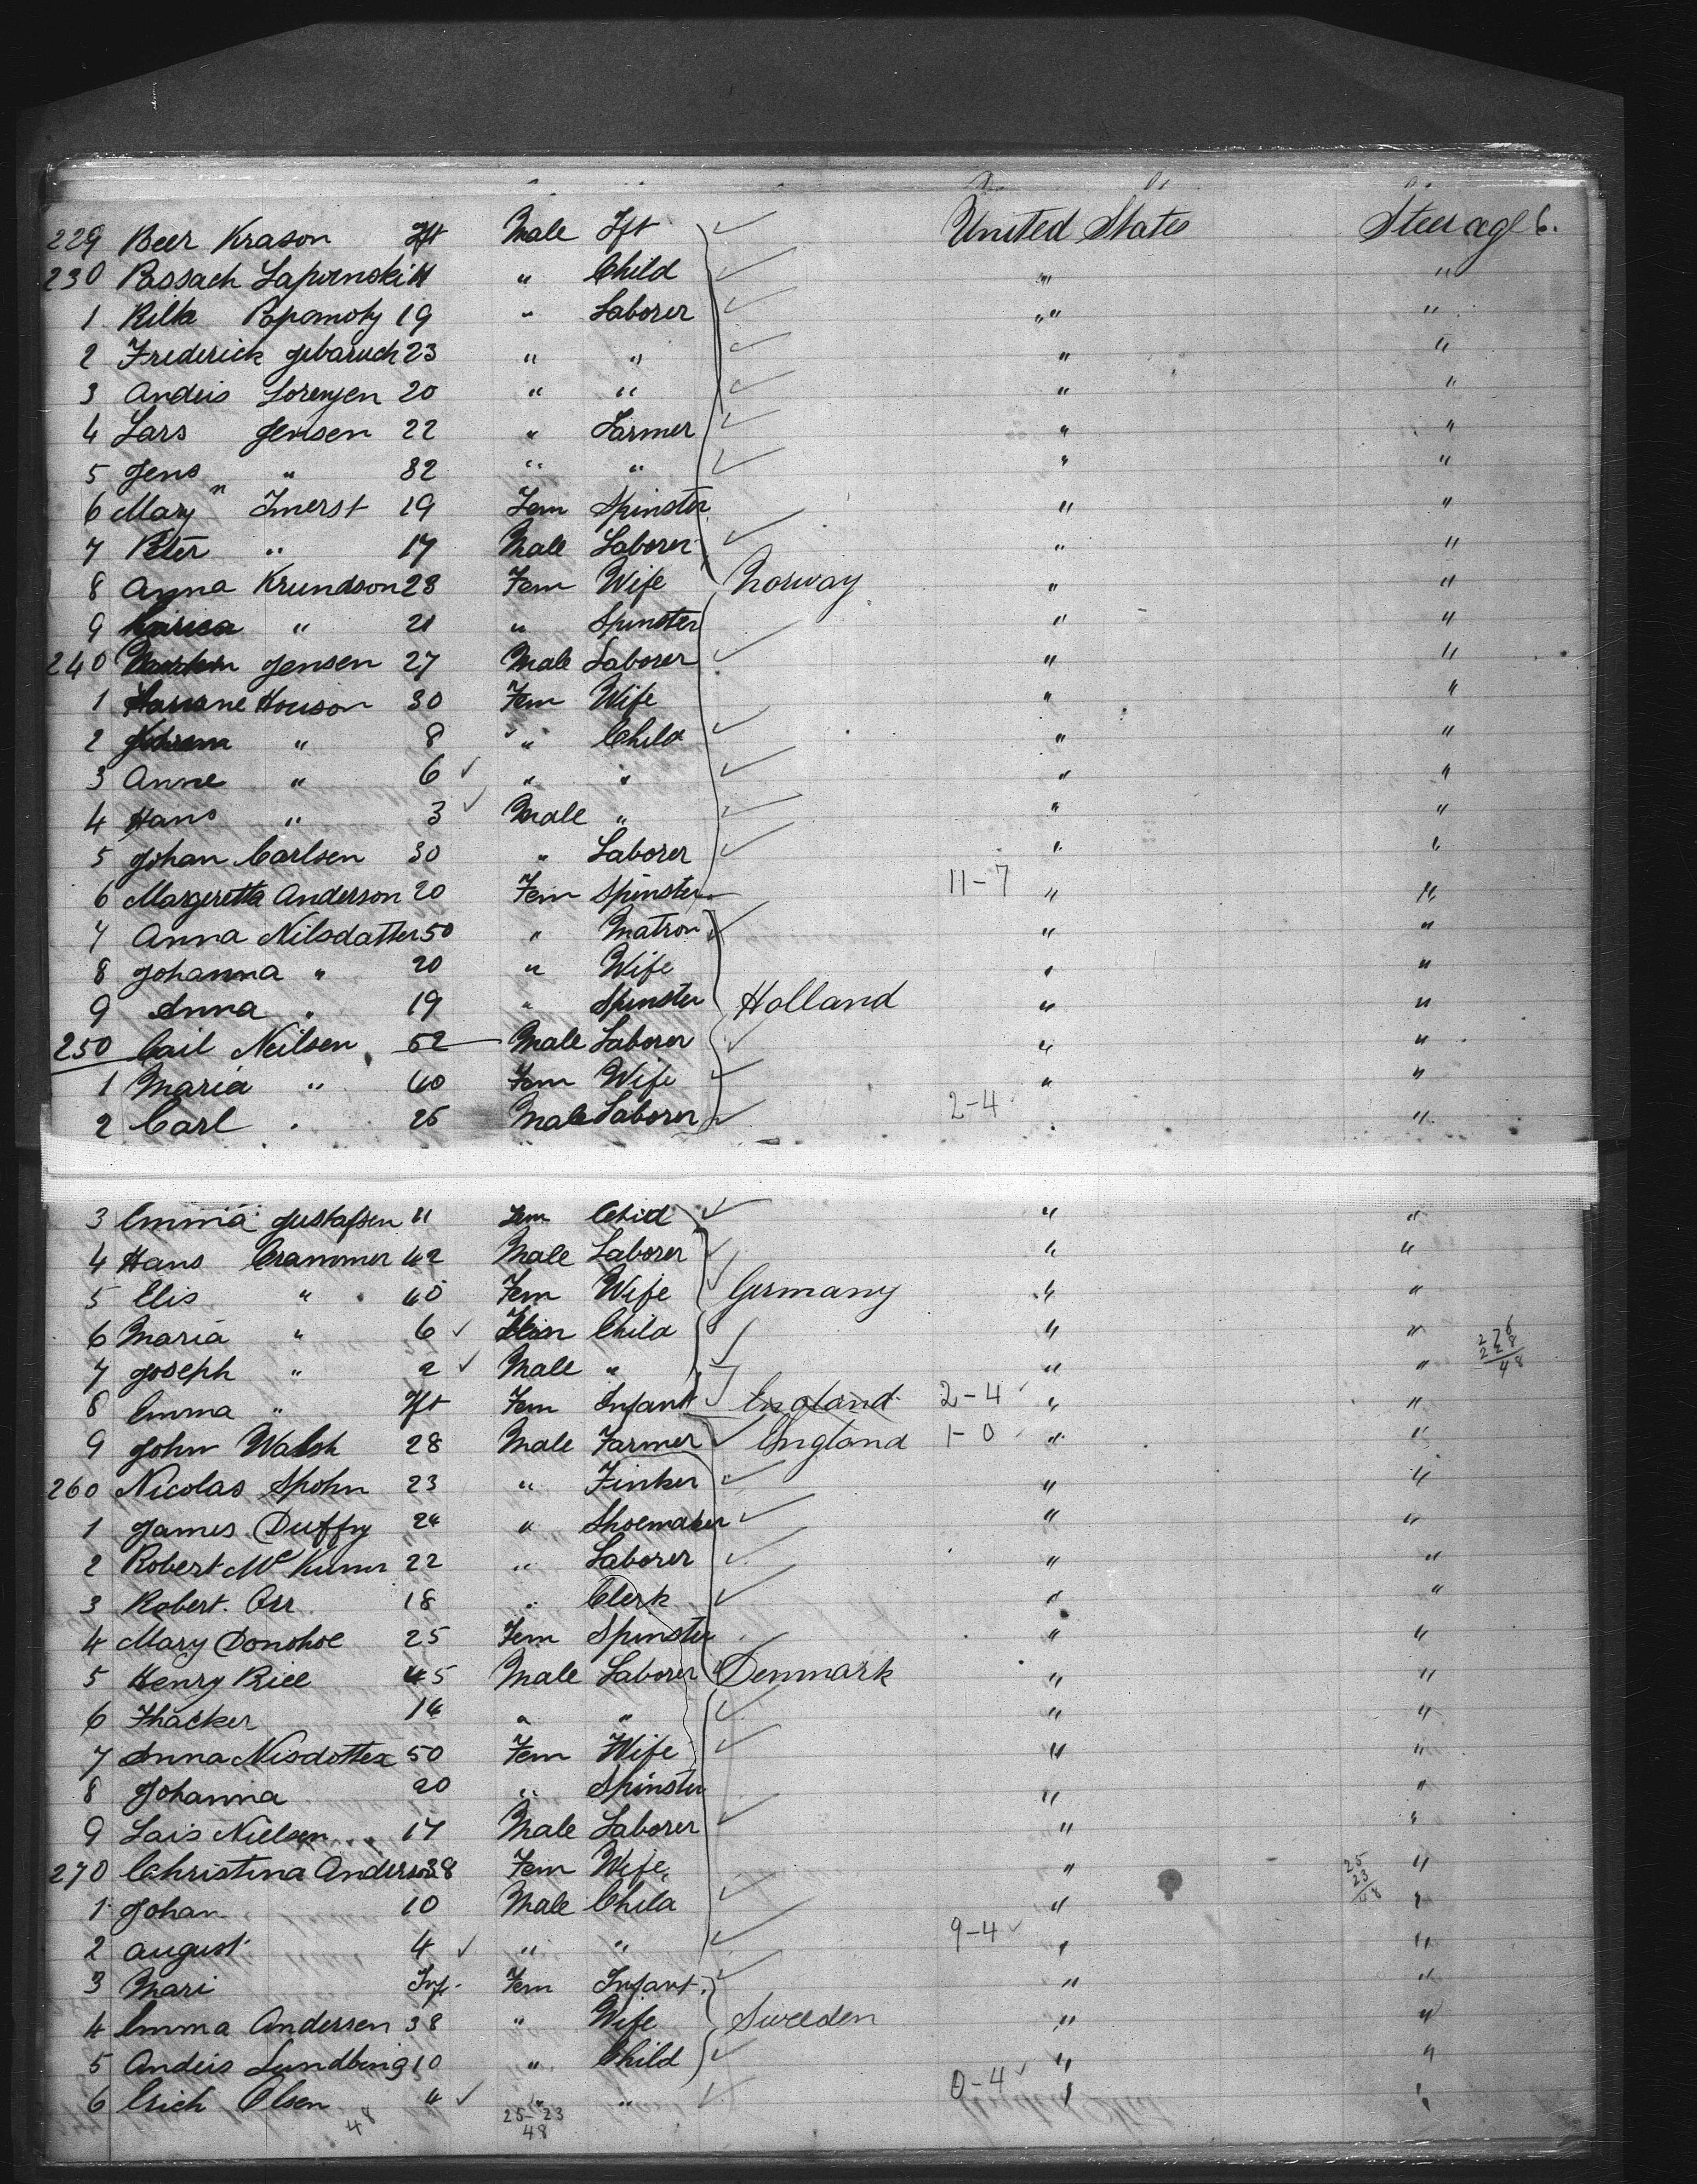 229 Beer Krason Ift Male Ift United States Steerage 6.
230 Possach 11 " Child " "
1 Rilka 19 " Laborer " "
2 Frederick Gebaruch 23 " " " "
3 Andeis Lorenzen 20 " " " "
4 Lars Jensen 22 " Farmer " "
5 Jens " 32 " " " "
6 Mary Imerst 19 Fem Spinster " "
7 Peter " 17 Male Laborer " "
8 Anna Krundson 28 Fem Wife Norway " "
9 " 21 " Spinster " "
240 Jensen 27 Male Laborer " "
1 Houson 30 Fem Wife " "
2 " 8 " Child " "
3 Anne " 6 " " " "
4 Hans " 3 Male " " "
5 Johan Carlsen 30 " Laborer " "
6 Margeretta Anderson 20 Fem Spinster 11-7 " "
7 Anna Nilsdatter 50 " Matron " "
8 Johanna " 20 " Wife " "
9 Anna " 19 " Spinster Holland " "
250 Carl Neilsen 52 Male Laborer " "
1 Maria " 60 Fem Wife " "
2 Carl " 25 Male Laborer 2-4 " "
3 Emma Gustafsen 11 Fem Chid " "
4 Hans Crammer 42 Male Laborer " "
5 Elis " 40 Fem Wife Germany " "
6 Maria " 6 Fem Child " "
7 Joseph " 2 Male " " "
8 Emma " Ift Fem Infant England 2-4 " "
9 John Walsh 28 Male Farmer England 1-0 " "
260 Nicolas Spohn 23 " Tinker " "
1 James Duffy 24 " Shoemaker " "
2 Robert Mc 22 " Laborer " "
3 Robert. Orr 18 " Clerk " "
4 Mary Donohoe 25 Fem Spinster " "
5 Henry Rice 45 Male Laborer Denmark " "
6 Thacker 14 " " " "
7 Anna Nisdotter 50 Fem Wife " "
8 Johanna 20 " Spinster " "
9 Lais Nielsen 17 Male Laborer " "
270 Christina Anderson 38 Fem Wife " "
1 Johan 10 Male Child " "
2 August 4 " " 9-4 " "
3 Mari Inf. Fem Infant " "
4 Emma Anderson 38 " Wife Sweeden " "
5 Andeis Lundberg 10 " Child " "
6 Erich Olsen 4 " " 0-4 " "
48 25-23
48